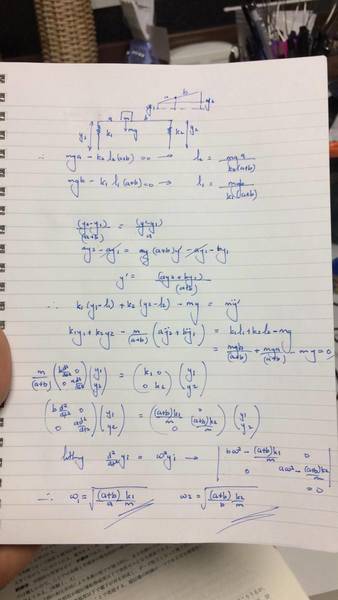 a b
y₁ y₂
a m b
y₁ k₁ mg k₂ y₂
∴ mga − k₂l₂(a+b) = 0 → l₂ = mga / k₂(a+b)
mgb − k₁l₁(a+b) = 0 → l₁ = mgb / k₁(a+b)
(y₂−y₁) / (a+b) = (y'−y₁) / a
ay₂ − ay₁ = (a+b)y' − ay₁ − by₁
y' = (ay₂ + by₁) / (a+b)
∴ k₁(y₁−l₁) + k₂(y₂−l₂) − mg = mÿ'
k₁y₁ + k₂y₂ − m/(a+b) (aÿ₂ + bÿ₁) = k₁l₁ + k₂l₂ − mg
= mgb/(a+b) + mga/(a+b) − mg = 0
m/(a+b) (b d²/dt² 0 ; 0 a d²/dt²) (y₁ ; y₂) = (k₁ 0 ; 0 k₂) (y₁ ; y₂)
(b d²/dt² 0 ; 0 a d²/dt²) (y₁ ; y₂) = ((a+b)k₁/m 0 ; 0 (a+b)k₂/m) (y₁ ; y₂)
letting d²/dt² yᵢ = ω²yᵢ → | bω² − (a+b)k₁/m 0 ; 0 aω² − (a+b)k₂/m | = 0
∴ ω₁ = √((a+b)/a k₂/m) ω₂ = √((a+b)/b k₂/m)